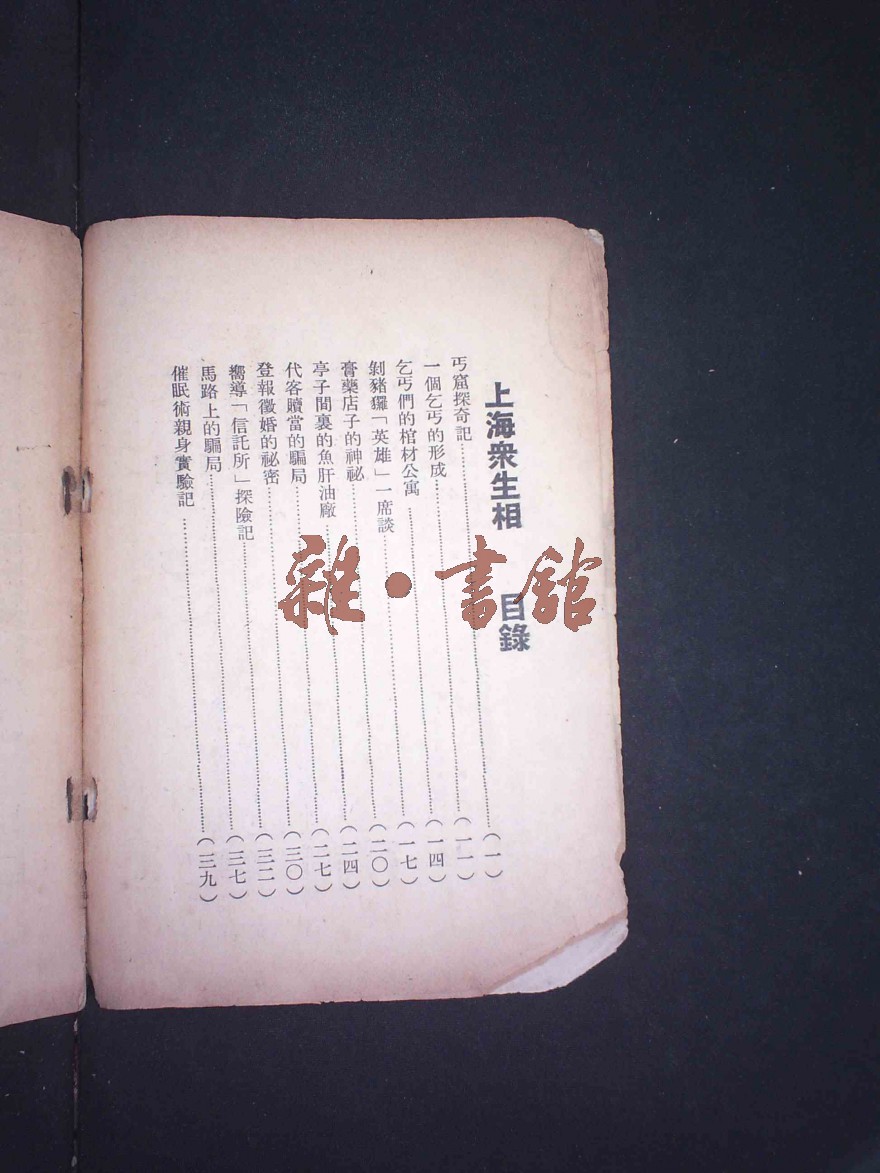 上海衆生相 目錄
丐窟探奇記……(一)
一個乞丐的形成……(一一)
乞丐們的棺材公寓……(一四)
剝豬玀「英雄」一席談……(一七)
膏藥店子的神祕……(二〇)
亭子間裏的魚肝油廠……(二四)
代客贖當的騙局……(二七)
登報徵婚的祕密……(三〇)
嚮導「信託所」探險記……(三二)
馬路上的騙局……(三七)
催眠術親身實驗記……(三九)
雜•書館